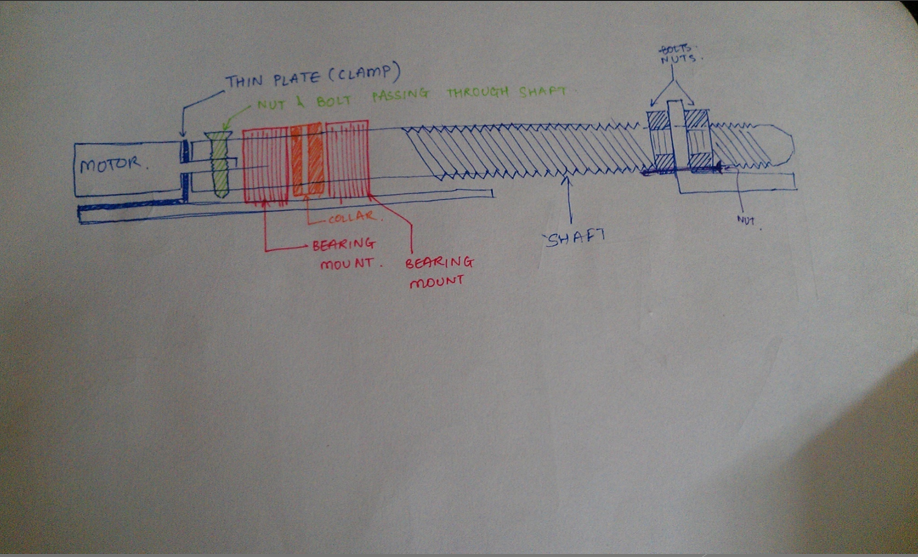 BOLTS.
NUTS.
THIN PLATE (CLAMP)
NUT & BOLT PASSING THROUGH SHAFT.
MOTOR.
COLLAR.
BEARING
MOUNT.
BEARING
MOUNT
SHAFT
NUT.